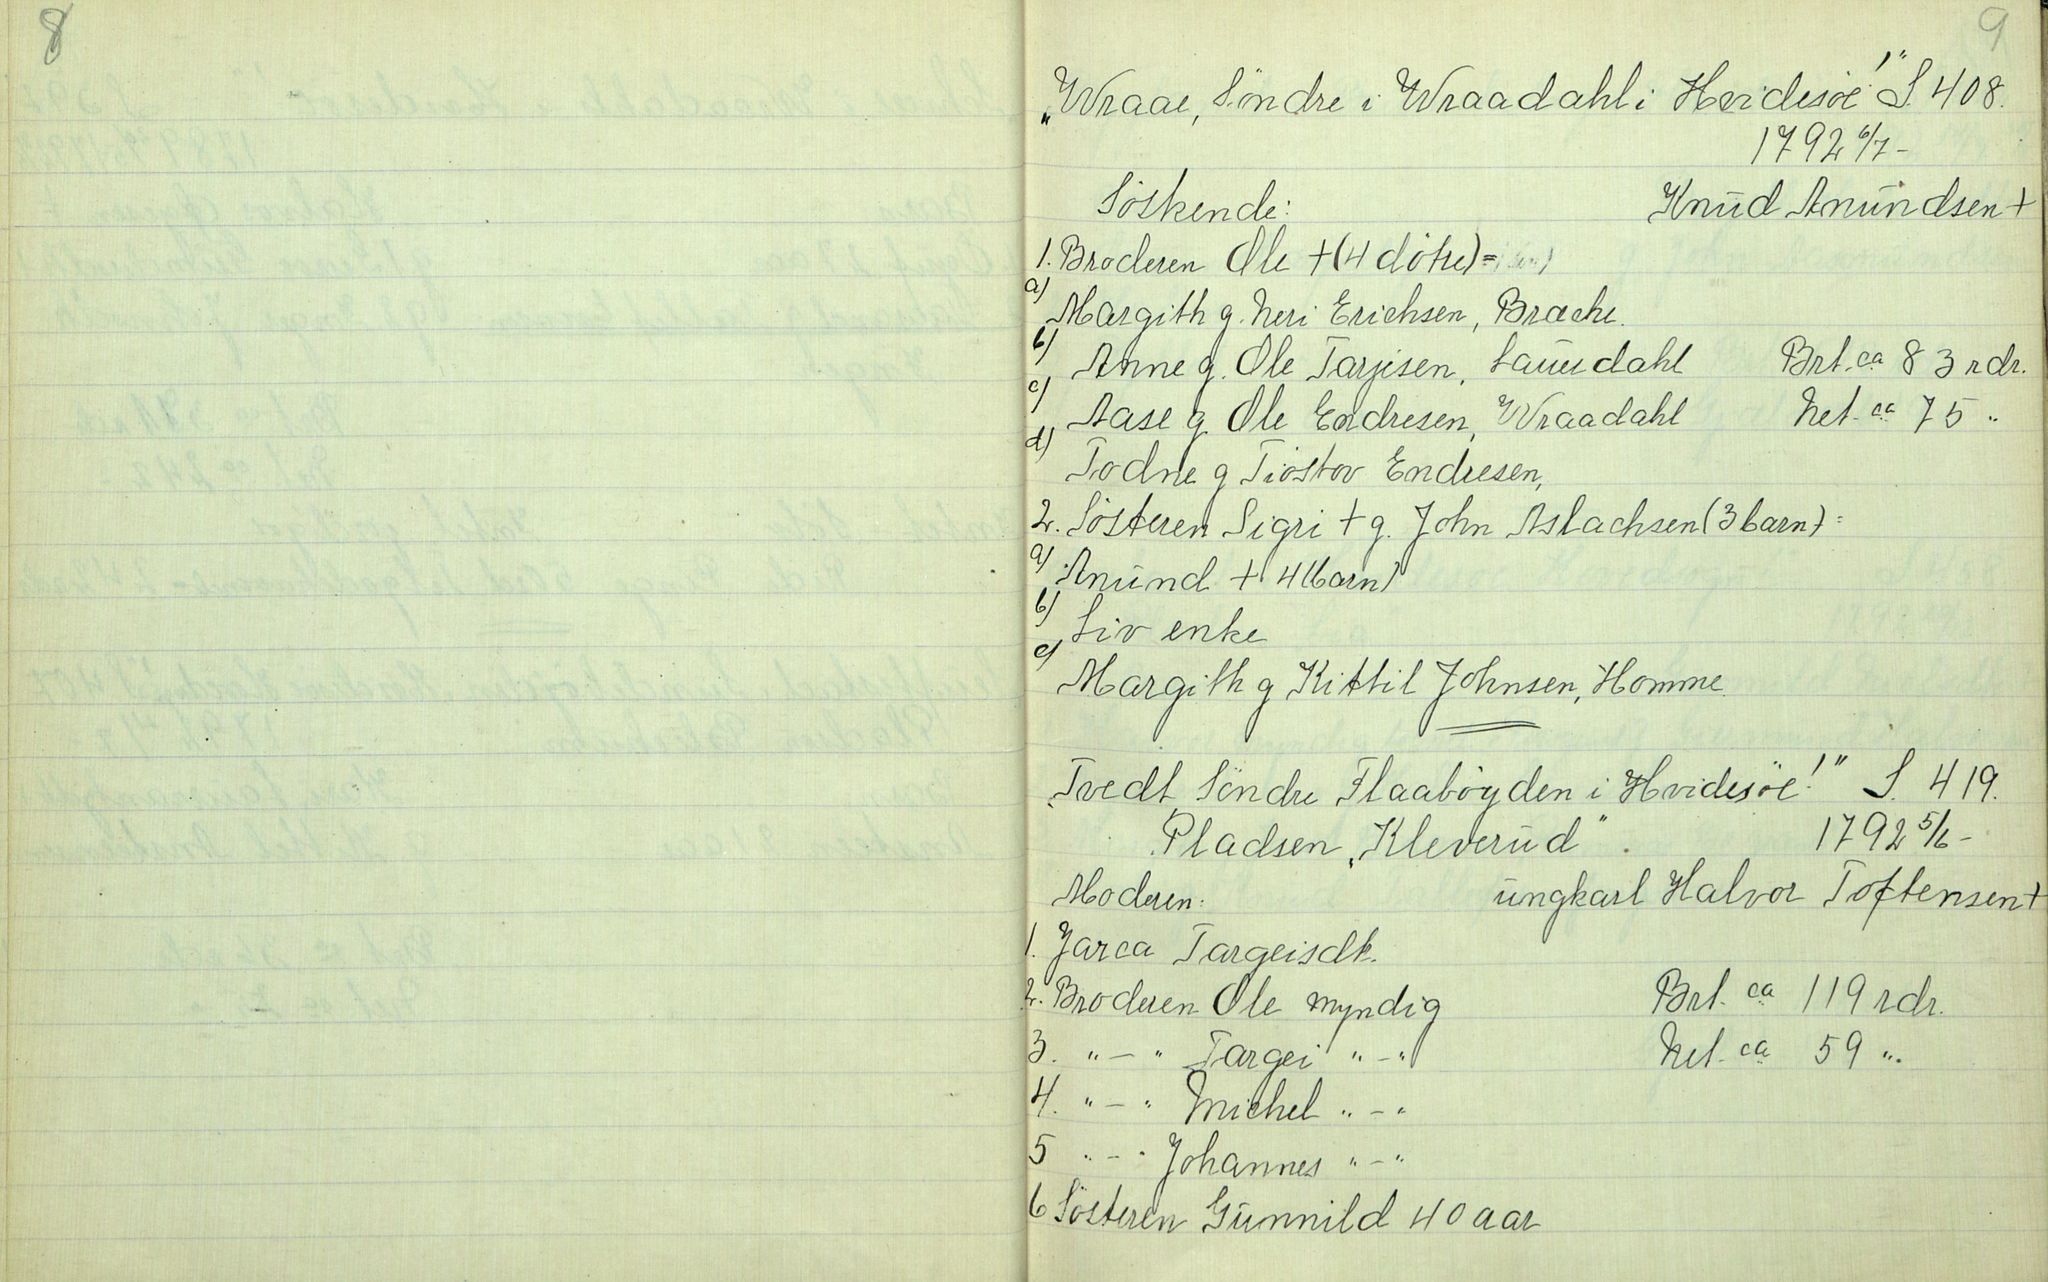 8
9
„Wraae, Söndre i Wraadahl i Hvidesöe!" S. 408.
1792 6/7 -
Söskende:    Knud Anundsen +
1. Broderen Ole + (4 dötre) =
a) Margith g. Neri Erichsen, Brache.
b) Anne g. Ole Tarjisen, Lauusdahl    Brt. ca 83 rdr.
c) Aase g. Ole Endresen, Wraadahl    Net. ca 75 "
d) Todne g Tiostov Endresen,
2. Sösteren Sigri + g. John Aslachsen (3 barn) =
a) Anund + 4 (barn)
b) Liv enke
c) Margith g Kittil Johnsen, Homme.
„Tvedt Söndre Flaabøyden i Hvidesöe!" S. 419.
Pladsen „Kleverud".    1792 5/6 -
Moderen:    ungkarl Halvor Toftensen +
1. Jarca Targeisdtr.
2. Broderen Ole myndig    Brt. ca 119 rdr.
3. " - " Targei " - "    Net. ca 59 ".
4. " - " Michel " - "
5 " - " Johannes " - "
6 Sösteren Gunnild 40 aar